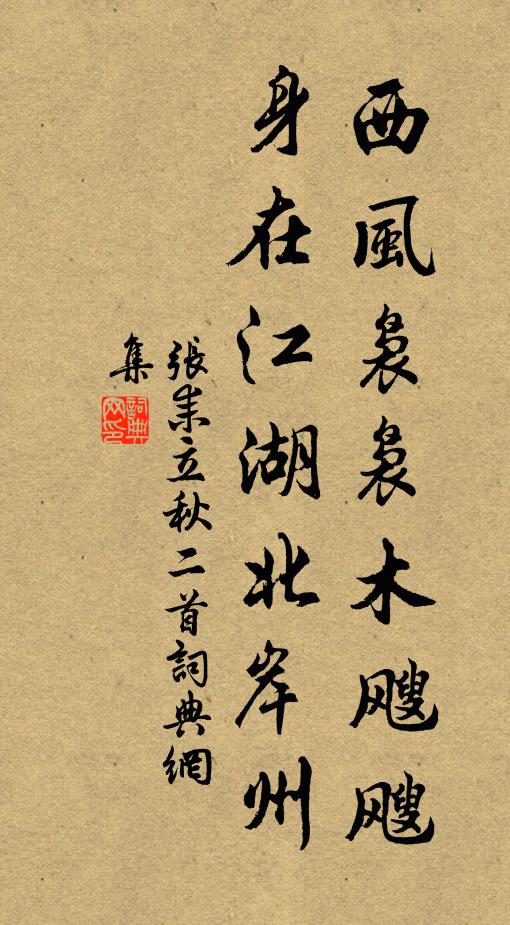 西風裊裊木颼颼
身在江湖北岸州
張耒立秋二首詞典網
集
詞典
网印